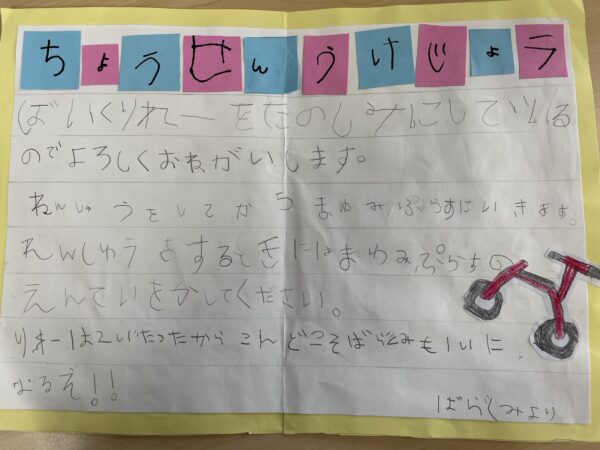 ちょうせんうけじょう
ばいくりれーをたのしみにしている
のでよろしくおねがいします。
れんしゅうをしてからまゆみぷらすにいきます。
れんしゅうをするときにはまゆみぷらすの
えんていをかしてください。
りれーは2いだったからこんどこそばらぐみも1いに
なるぞ!!
ばらぐみより